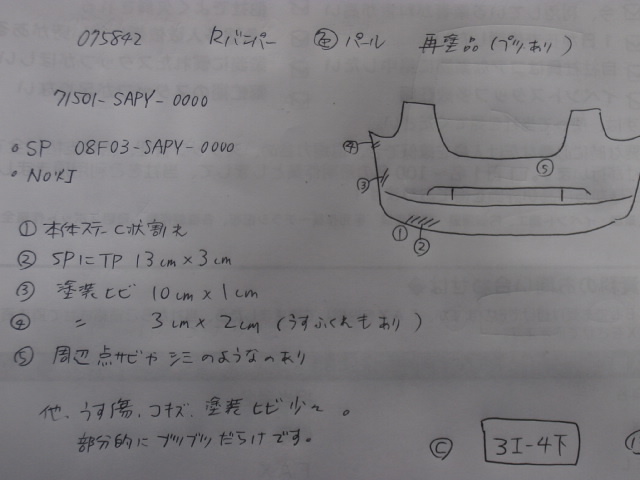 075842 Rバンパー 色 パール 再塗品(ブツあり)
71501-SAPY-0000
• SP 08F03-SAPY-0000
• No灯
① 本体ステーC状割れ
② SPにTP 13cm×3cm
③ 塗装ヒビ 10cm×1cm
④ 〃 3cm×2cm (うすふくれもあり)
⑤ 周辺点サビやシミのようなのあり
他、うす傷、コキズ、塗装ヒビ少々。
部分的にブツブツだらけです。
④
③
⑤
①
②
Ⓒ 3I-4下